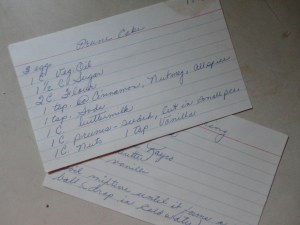 Prune Cake
3 eggs
1 C. Veg. Oil
1 1/2 C. Sugar
2 C. Flour
1 tsp. ea Cinnamon, Nutmeg, Allspice
1 tsp. Soda
1 C buttermilk
1 C prunes - cooked, Cut in small pcs.
1 C Nuts 1 tsp Vanilla
vanilla
mixture until it forms a
ball (drop in cold water)